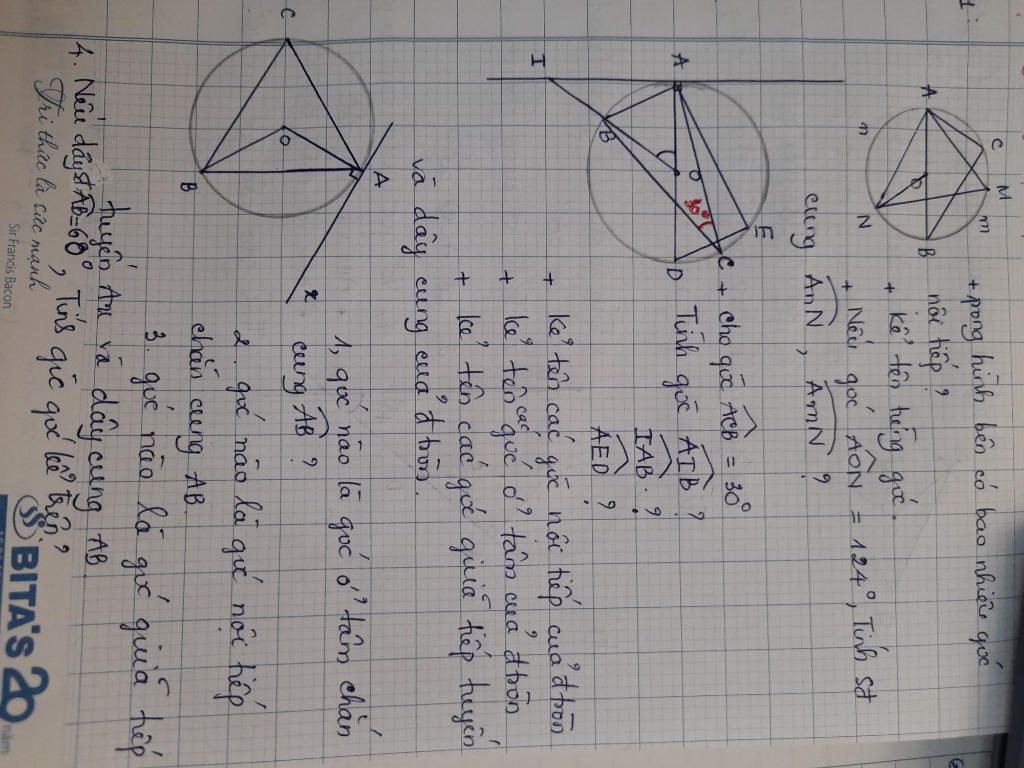 1:
+ trong hình bên có bao nhiêu góc
nội tiếp?
+ Kể tên từng góc.
+ Nếu góc AON = 124°, Tính sđ
cung AnN, AmN?
A
C
M
m
B
N
n
O
+ cho góc ACB = 30°
Tính góc AIB?
IAB?
AED?
I
A
B
O
30°
E
C
D
+ Kể tên các góc nội tiếp của đtròn
+ kể tên các góc ở tâm của đtròn
+ kể tên các góc giữa tiếp tuyến
và dây cung của đtròn.
1, góc nào là góc ở tâm chắn
cung AB?
2. góc nào là góc nội tiếp
chắn cung AB
3. góc nào là góc giữa tiếp
tuyến Ax và dây cung AB
C
O
B
A
x
4. Nếu dây sđ AB = 60°, Tính góc góc kể trên?
Tri thức là sức mạnh
Sir Francis Bacon
BITA'S
20
năm